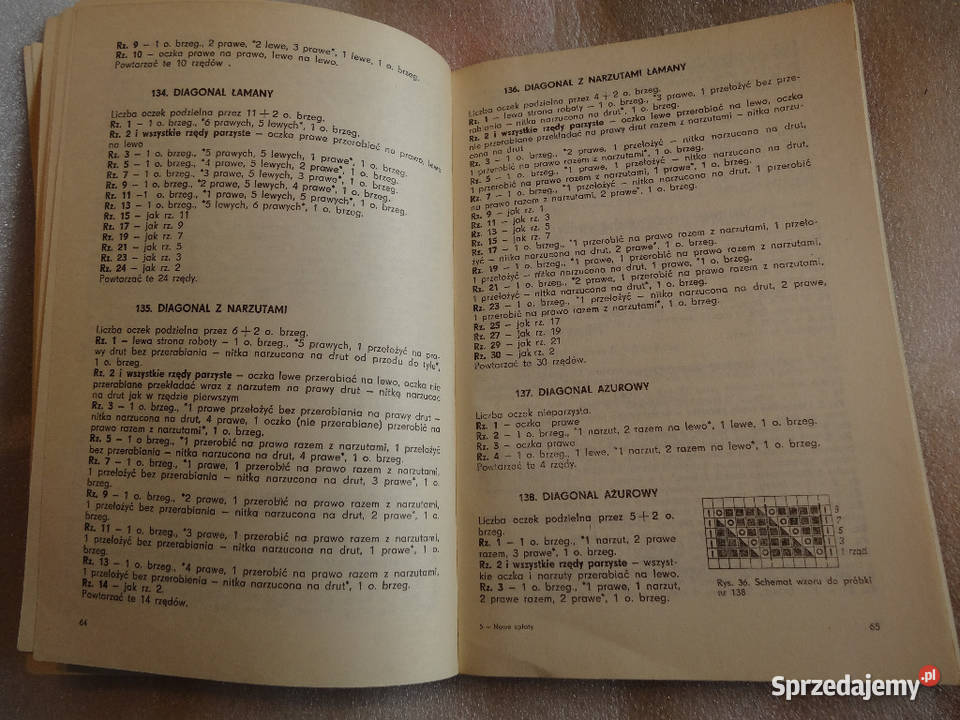 Rz. 9 – 1 o. brzeg., 2 prawe, *2 lewe, 3 prawe*, 1 lewe, 1 o. brzeg.
Rz. 10 – oczka prawe na prawo, lewe na lewo.
Powtarzać te 10 rzędów .
134. DIAGONAL ŁAMANY
Liczba oczek podzielna przez 11+2 o. brzeg.
Rz. 1 – 1 o. brzeg., *6 prawych, 5 lewych*, 1 o. brzeg.
Rz. 2 i wszystkie rzędy parzyste – oczka prawe przerabiać na prawo, lewe
na lewo
Rz. 3 – 1 o. brzeg., *5 prawych, 5 lewych, 1 prawe*, 1 o. brzeg.
Rz. 5 – 1 o. brzeg., *4 prawe, 5 lewych, 2 prawe*, 1 o. brzeg.
Rz. 7 – 1 o. brzeg., *3 prawe, 5 lewych, 3 prawe*, 1 o. brzeg.
Rz. 9 – 1 o. brzeg., *2 prawe, 5 lewych, 4 prawe*, 1 o. brzeg.
Rz. 11 –1 o. brzeg., *1 prawe, 5 lewych, 5 prawych*, 1 o. brzeg.
Rz. 13 – 1 o. brzeg., *5 lewych, 6 prawych*, 1 o. brzeg.
Rz. 15 – jak rz. 11
Rz. 17 – jak rz. 9
Rz. 19 – jak rz. 7
Rz. 21 – jak rz. 5
Rz. 23 – jak rz. 3
Rz. 24 – jak rz. 2
Powtarzać te 24 rzędy.
135. DIAGONAL Z NARZUTAMI
Liczba oczek podzielna przez 6+2 o. brzeg.
Rz. 1 – lewa strona roboty – 1 o. brzeg., *5 prawych, 1 przełożyć na pra-
wy drut bez przerabiania – nitka narzucona na drut od przodu do tyłu*,
1 o. brzeg.
Rz. 2 i wszystkie rzędy parzyste – oczka lewe przerabiać na lewo, oczka nie
przerabiane przekładać wraz z narzutem na prawy drut – nitkę narzucać
na drut jak w rzędzie pierwszym
Rz. 3 – 1 o. brzeg., *1 prawe przełożyć bez przerabiania na prawy drut –
nitka narzucona na drut, 4 prawe, 1 oczko (nie przerabiane) przerobić na
prawo razem z narzutami*, 1 o. brzeg.
Rz. 5 – 1 o. brzeg., *1 przerobić na prawo razem z narzutami, 1 przełożyć
bez przerabiania – nitka narzucona na drut, 4 prawe*, 1 o. brzeg.
Rz. 7 – 1 o. brzeg., *1 prawe, 1 przerobić na prawo razem z narzutami,
1 przełożyć bez przerabiania – nitka narzucona na drut, 3 prawe*, 1 o.
brzeg.
Rz. 9 – 1 o. brzeg., *2 prawe, 1 przerobić na prawo razem z narzutami,
1 przełożyć bez przerabiania – nitka narzucona na drut, 2 prawe*, 1 o.
brzeg.
Rz. 11 – 1 o. brzeg., *3 prawe, 1 przerobić na prawo razem z narzutami,
1 przełożyć bez przerabiania – nitka narzucona na drut, 1 prawe*, 1 o.
brzeg.
Rz. 13 – 1 o. brzeg., *4 prawe, 1 przerobić na prawo razem z narzutami,
1 przełożyć bez przerobienia – nitka narzucona na drut*, 1 o. brzeg.
Rz. 14 – jak rz. 2.
Powtarzać te 14 rzędów.
64
136. DIAGONAL Z NARZUTAMI ŁAMANY
Liczba oczek podzielna przez 4+2 o. brzeg.
Rz. 1 – lewa strona roboty – 1 o. brzeg., *3 prawe, 1 przełożyć bez prze-
rabiania – nitka narzucona na drut*, 1 o. brzeg.
Rz. 2 i wszystkie rzędy parzyste – oczka lewe przerabiać na lewo, oczka
nie przerabiane przekładać na prawy drut razem z narzutami – nitka narzu-
cona na drut
Rz. 3 – 1 o. brzeg., *2 prawe, 1 przełożyć – nitka narzucona na drut,
1 przerobić na prawo razem z narzutami*, 1 o. brzeg.
Rz. 5 – 1 o. brzeg., *1 prawe, 1 przełożyć – nitka narzucona na drut,
1 przerobić na prawo razem z narzutami, 1 prawe*, 1 o. brzeg.
Rz. 7 – 1 o. brzeg., *1 przełożyć – nitka narzucona na drut, 1 przerobić
na prawo razem z narzutami, 2 prawe*. 1 o. brzeg.
Rz. 9 – jak rz. 1
Rz. 11 – jak rz. 3
Rz. 13 – jak rz. 5
Rz. 15 – jak rz. 7
Rz. 17 – 1 o. brzeg., *1 przerobić na prawo razem z narzutami, 1 przeło-
żyć – nitka narzucona na drut, 2 prawe*, 1 o. brzeg.
Rz. 19 – 1 o. brzeg., *1 prawe, 1 przerobić na prawo razem z narzutami,
1 przełożyć – nitka narzucona na drut, 1 prawe, *1 o. brzeg.
Rz. 21 – 1 o. brzeg., *2 prawe, 1 przerobić na prawo razem z narzutami,
1 przełożyć – nitka narzucona na drut*, 1 o. brzeg.
Rz. 23 – 1 o. brzeg., *1 przełożyć – nitka narzucona na drut, 2 prawe,
1 przerobić na prawo razem z narzutami*, 1 o. brzeg.
Rz. 25 – jak rz. 17
Rz. 27 – jak rz. 19
Rz. 29 – jak rz. 21
Rz. 30 – jak rz. 2
Powtarzać te 30 rzędów.
137. DIAGONAL AŻUROWY
Liczba oczek nieparzysta.
Rz. 1 – oczka prawe
Rz. 2 – 1 o. brzeg., *1 narzut, 2 razem na lewo*, 1 lewe, 1 o. brzeg.
Rz. 3 – oczka prawe
Rz. 4 – 1 o. brzeg., 1 lewe, *1 narzut, 2 razem na lewo*, 1 o. brzeg.
Powtarzać te 4 rzędy.
138. DIAGONAL AŻUROWY
Liczba oczek podzielna przez 5+2 o.
brzeg.
Rz. 1 – 1 o. brzeg., *1 narzut, 2 prawe
razem, 3 prawe*, 1 o. brzeg.
Rz. 2 i wszystkie rzędy parzyste – wszyst-
kie oczka i narzuty przerabiać na lewo.
Rz. 3 – 1 o. brzeg., *1 prawe, 1 narzut,
2 prawe razem, 2 prawe*, 1 o. brzeg.
9
7
5
3
1 rząd
Rys. 36. Schemat wzoru do próbki
nr 138
5 – Nowe sploty
65
Sprzedajemy.pl